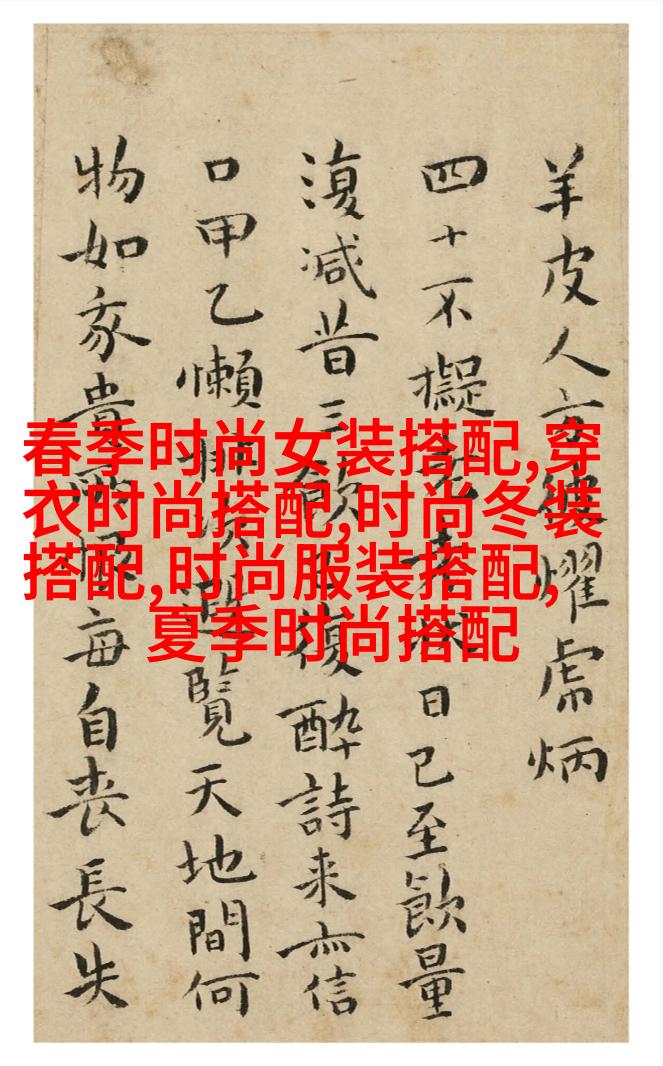 羊皮人耀虎炳
四十不擬日已至飲量
復減昔三飲復醉詩来亦信
口甲乙懶遐覽天地間何
物如豕貴每自喪長失
春季时尚女装搭配,穿
衣时尚搭配,时尚冬装
搭配,时尚服装搭配,
夏季时尚搭配